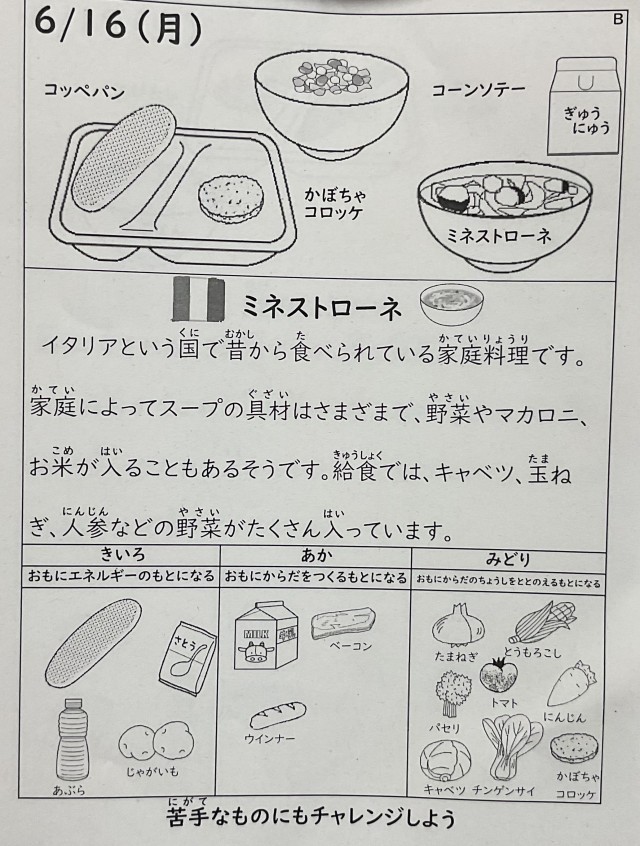 6/16(月)
B
コッペパン
コーンソテー
ぎゅう
にゅう
かぼちゃ
コロッケ
ミネストローネ
ミネストローネ
イタリアという国で昔から食べられている家庭料理です。
家庭によってスープの具材はさまざまで、野菜やマカロニ、
お米が入ることもあるそうです。給食では、キャベツ、玉ね
ぎ、人参などの野菜がたくさん入っています。
きいろ
おもにエネルギーのもとになる
さとう
あぶら
じゃがいも
あか
おもにからだをつくるもとになる
MILK
ベーコン
ウインナー
みどり
おもにからだのちょうしをととのえるもとになる
たまねぎ
とうもろこし
トマト
パセリ
にんじん
キャベツ
チンゲンサイ
かぼちゃ
コロッケ
苦手なものにもチャレンジしよう